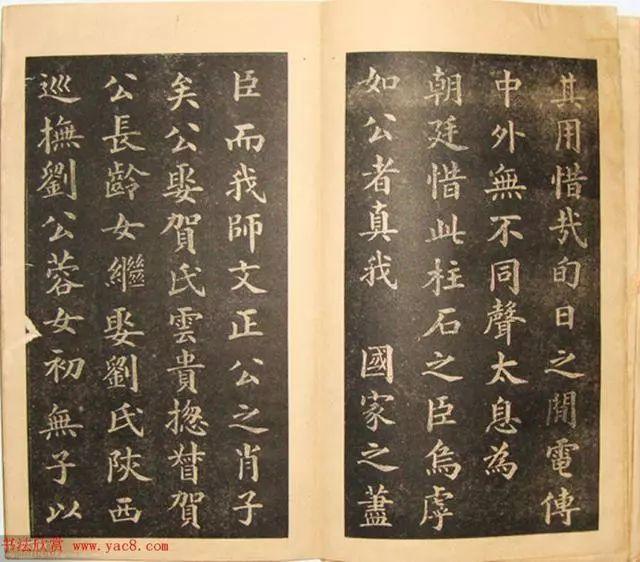 其用惜哉旬日之間電傳
中外無不同聲太息為
朝廷惜此柱石之臣烏虖
如公者真我 國家之藎
臣而我師文正公之肖子
矣公娶賀氏雲貴揔督賀
公長齡女繼娶劉氏陝西
巡撫劉公蓉女初無子以
书法欣赏 www.yac8.com